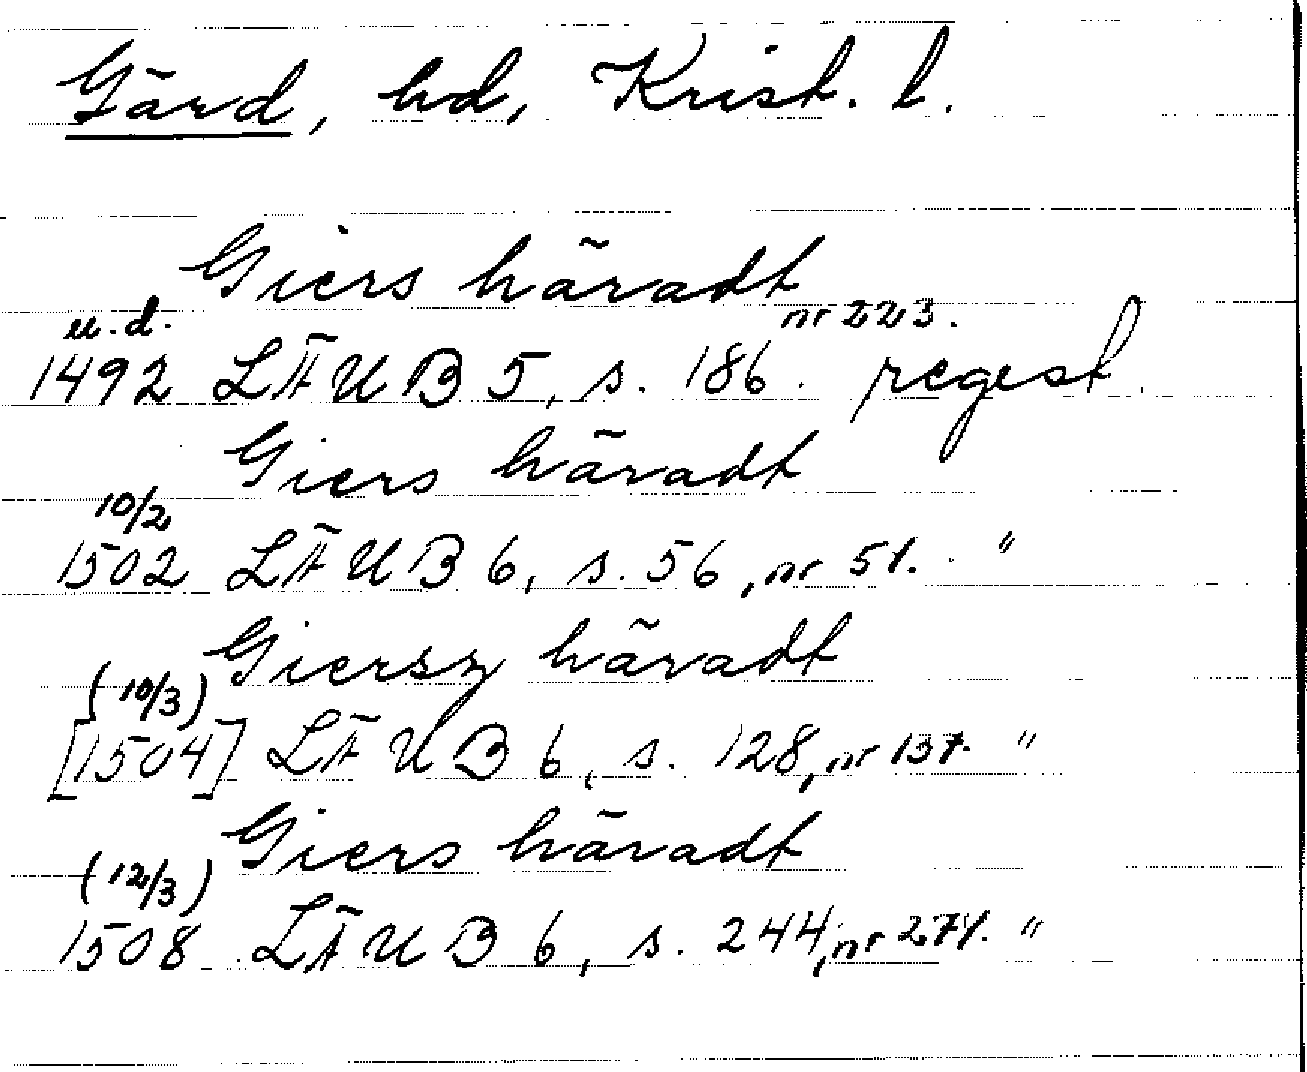 Gärd, hd, Krist. l.
Giers häradt
u.d.
nr 223.
1492 LÄUB 5, s. 186. regest.
Giers häradt
10/2
1502 LÄUB 6, s. 56, nr 51. "
Giersz häradt
(10/3)
[1504] LÄUB 6, s. 128, nr 137. "
Giers häradt
(12/3)
1508 LÄUB 6, s. 244, nr 271. "